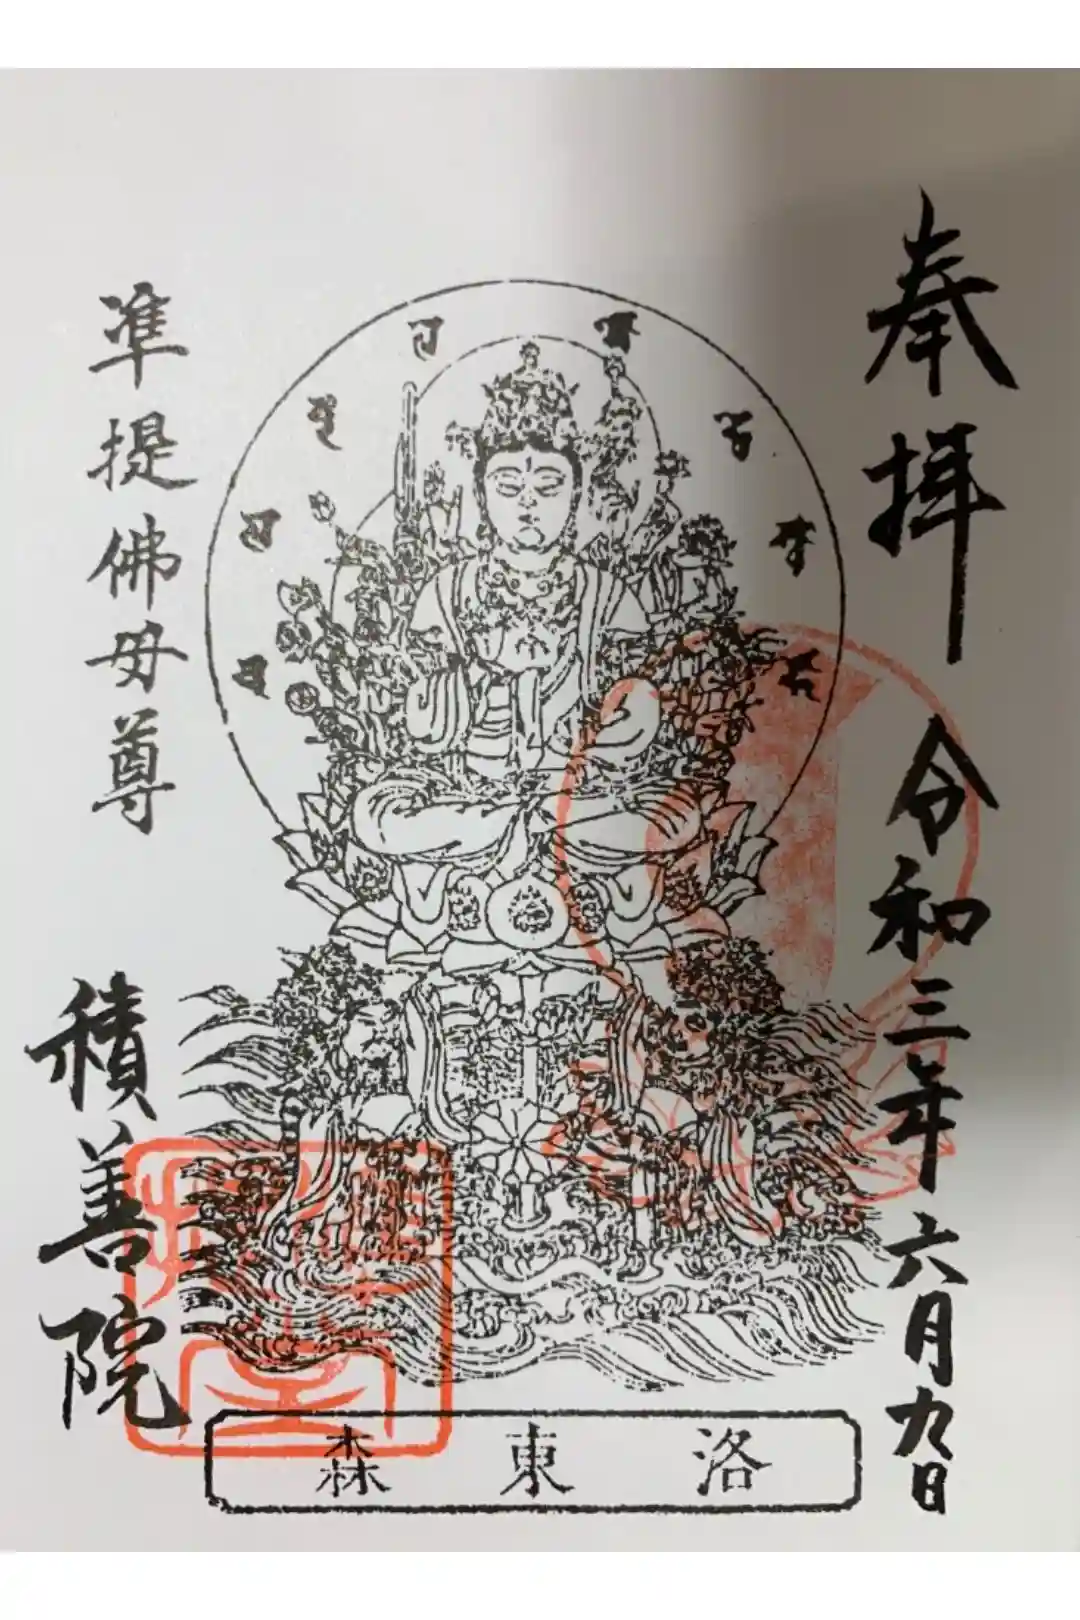 奉拝
令和三年六月九日
準提佛母尊
積善院
洛東森